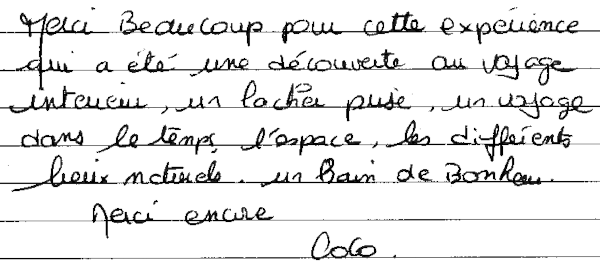 Merci Beaucoup pour cette expérience
qui a été une découverte au voyage
intérieur, un lacher prise, un voyage
dans le temps, l'espace, les différents
lieux naturels. un Bain de Bonheur.
Merci encore
CoCo.